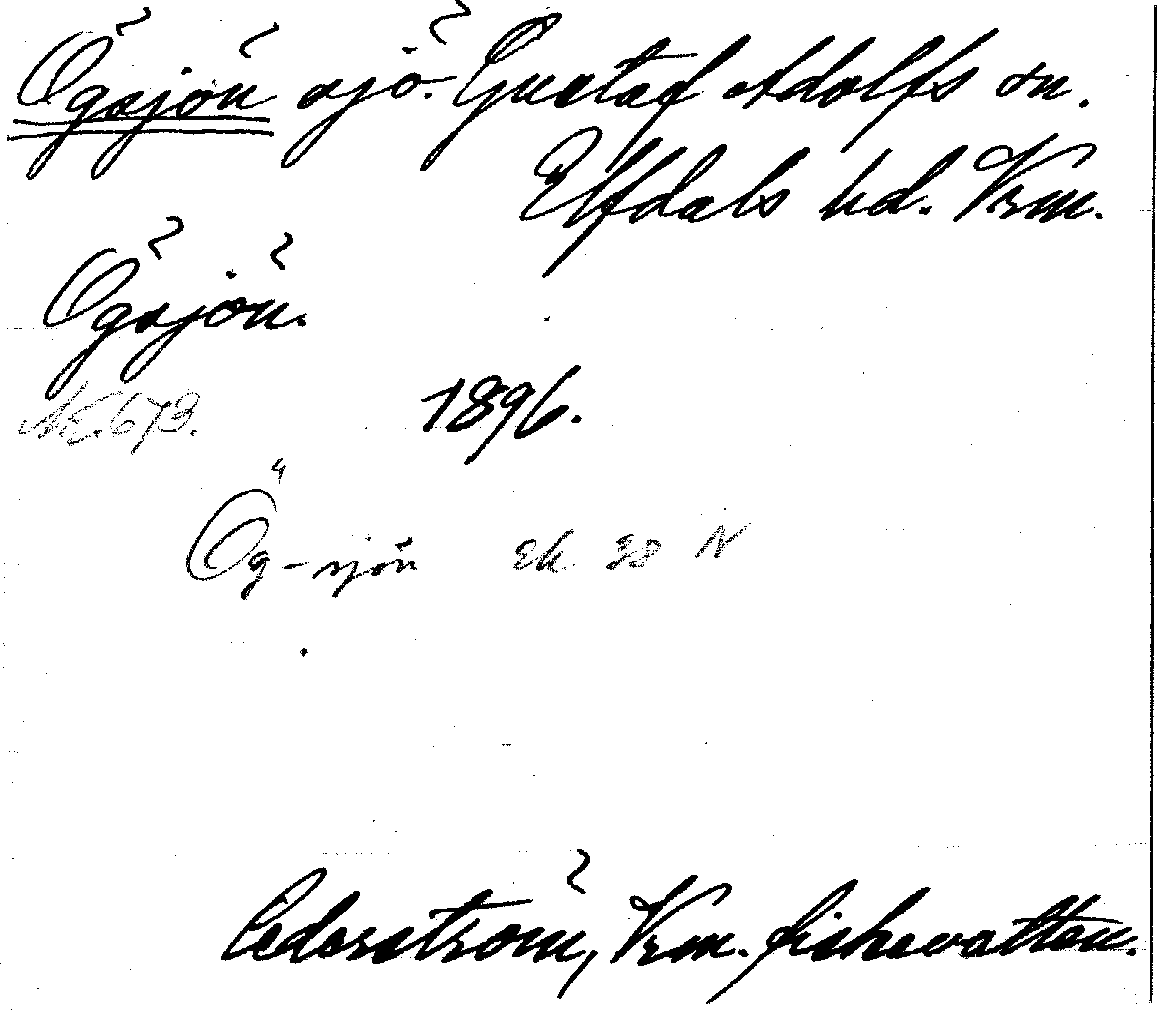 Ögsjön sjö. Gustaf Adolfs sn.
Elfdals hd. Vrm.
Ögsjön.
NE. 673. 1896.
Ög-sjön Ek 38 N
Cederström, Vrm. fiskevatten.